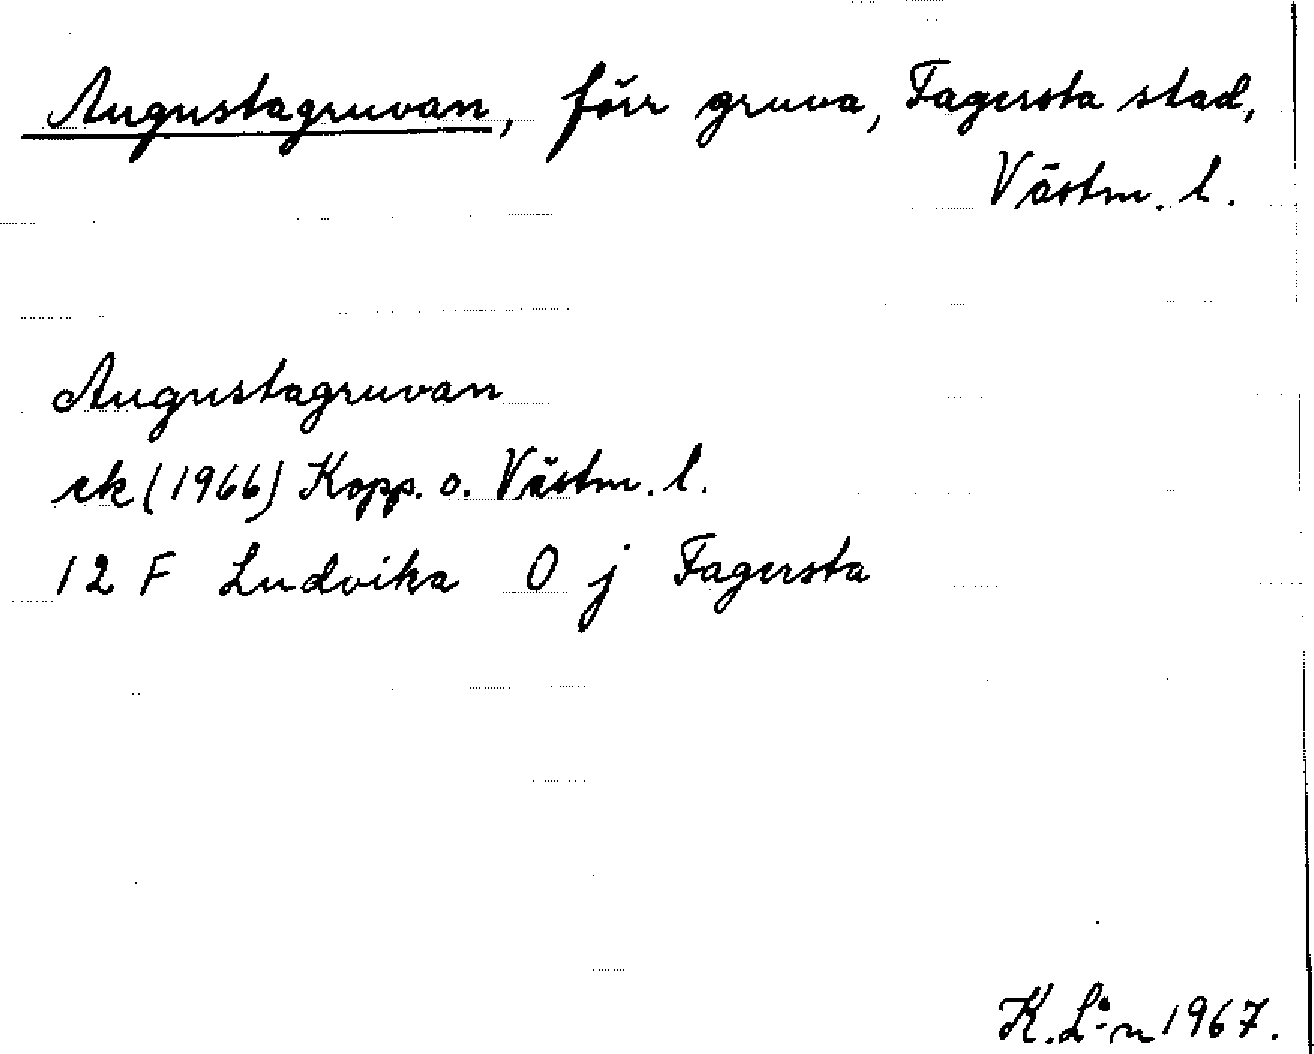 Augustagruvan, förr gruva, Fagersta stad,
Västm. l.
Augustagruvan
ek (1966) Kopp. o. Västm. l.
12 F Ludvika O j Fagersta
K. L:n 1967.